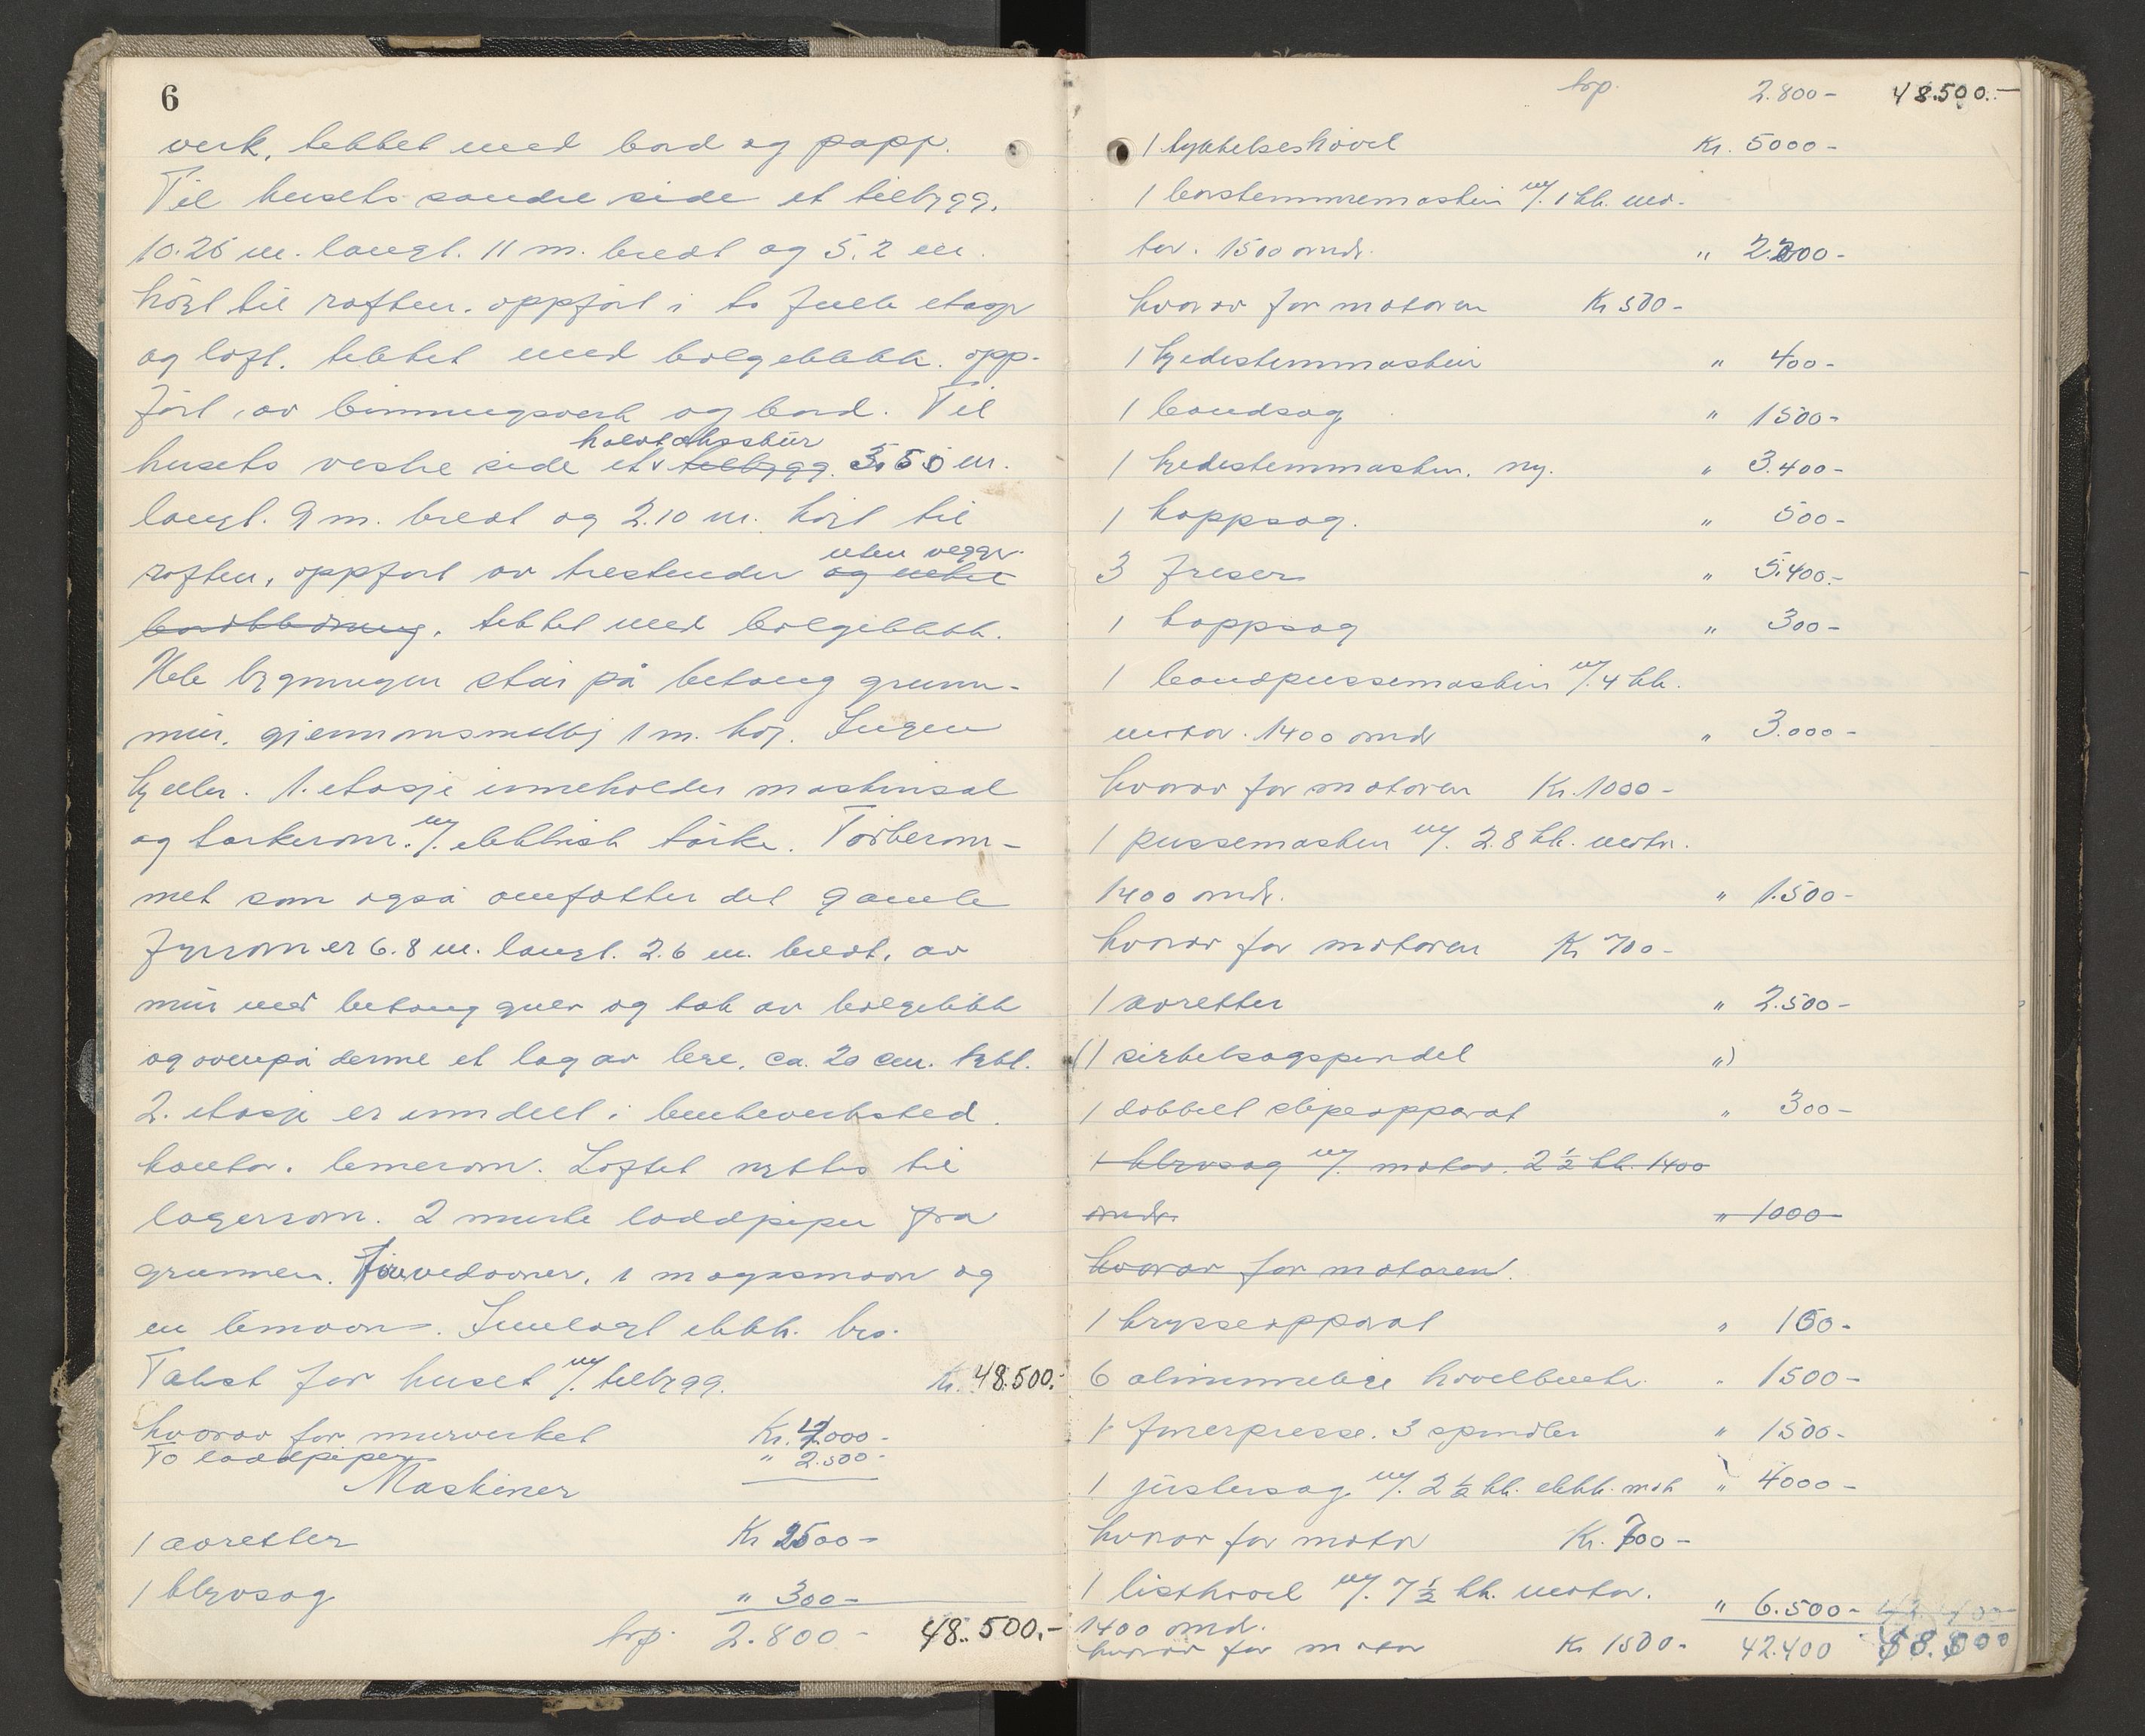 6
verk, tekket med bord og papp.
Til husets søndre side et tilbygg,
10.25 m. langt. 11 m. bredt og 5.2 m.
høgt til raften. oppført i to fulle etasjer
og loft. tekket med bølgeblikk. opp-
ført av bindingsverk og bord. Til
halvtaksskur
husets vestre side et tilbygg. 3.50 m.
langt. 9 m. bredt og 2.10 m. høgt til
uten vegger
raften, oppført av trestender og uten
bordkledning, tekket med bølgeblikk.
Hele bygningen står på betong grunn-
mur, gjennomsnittlig 1 m. høy. Ingen
kjeller. 1. etasje inneholder maskinsal
og tørkerom m/. elektrisk tørke. Tørkerom-
met som også omfatter det gamle
fyrrom er 6.8 m. langt. 2.6 m. bredt, av
mur med betong gulv og tak av bølgeblikk
og ovenpå denne et lag av leire, ca. 20 cm. tykt.
2. etasje er inndelt i benkeverksted.
kontor. limerom. Loftet nyttes til
lagerrom. 2 murte loddpiper fra
grunnen. Fire vedovner, 1 magasinovn og
en limovn. Innlagt elektr. lys.
Takst for huset m/. tilbygg. Kr. 48.500.-
hvorav for murverket Kr. 12.000-
To loddpiper " 2.500-
Maskiner
1 avretter Kr 2500-
1 kløvsag " 300-
trp. 2.800- 48.500.-
trp. 2.800- 48.500.-
1 tykkelseshøvel Kr. 5000-
1 borstemmemaskin m/. 1 hk. mo-
tor. 1500 omdr. " 2.200-
hvorav for motoren Kr 500-
1 kjedestemmaskin " 400-
1 bandsag " 1500-
1 kjedestemmaskin. ny. " 3.400-
1 kappsag. " 500-
3 freser " 5.400.-
1 kappsag " 300-
1 bandpussemaskin m/. 4 hk.
motor. 1400 omdr " 3.000-
hvorav for motoren Kr. 1000-
1 pussemaskin m/. 2.8 hk. motor.
1400 omdr. " 1.500-
hvorav for motoren Kr 700-
1 avretter " 2.500-
(1 sirkelsagspindel ")
1 dobbelt slipeapparat " 300-
1 kløvsag m/. motor. 2 1/2 hk. 1400
omdr. " 1000-
hvorav for motoren.
1 trykkeapparat " 100-
6 alminnelige høvelbenker " 1500-
1 finerpresse. 3 spindler " 1500-
1 justersag m/. 2 1/2 hk. elektr. mot " 4000-
hvorav for motor Kr. 700-
1 listhøvel m/. 7 1/2 hk. motor.
1400 omdr. " 6.500-
hvorav for motor Kr 1500- 42.400